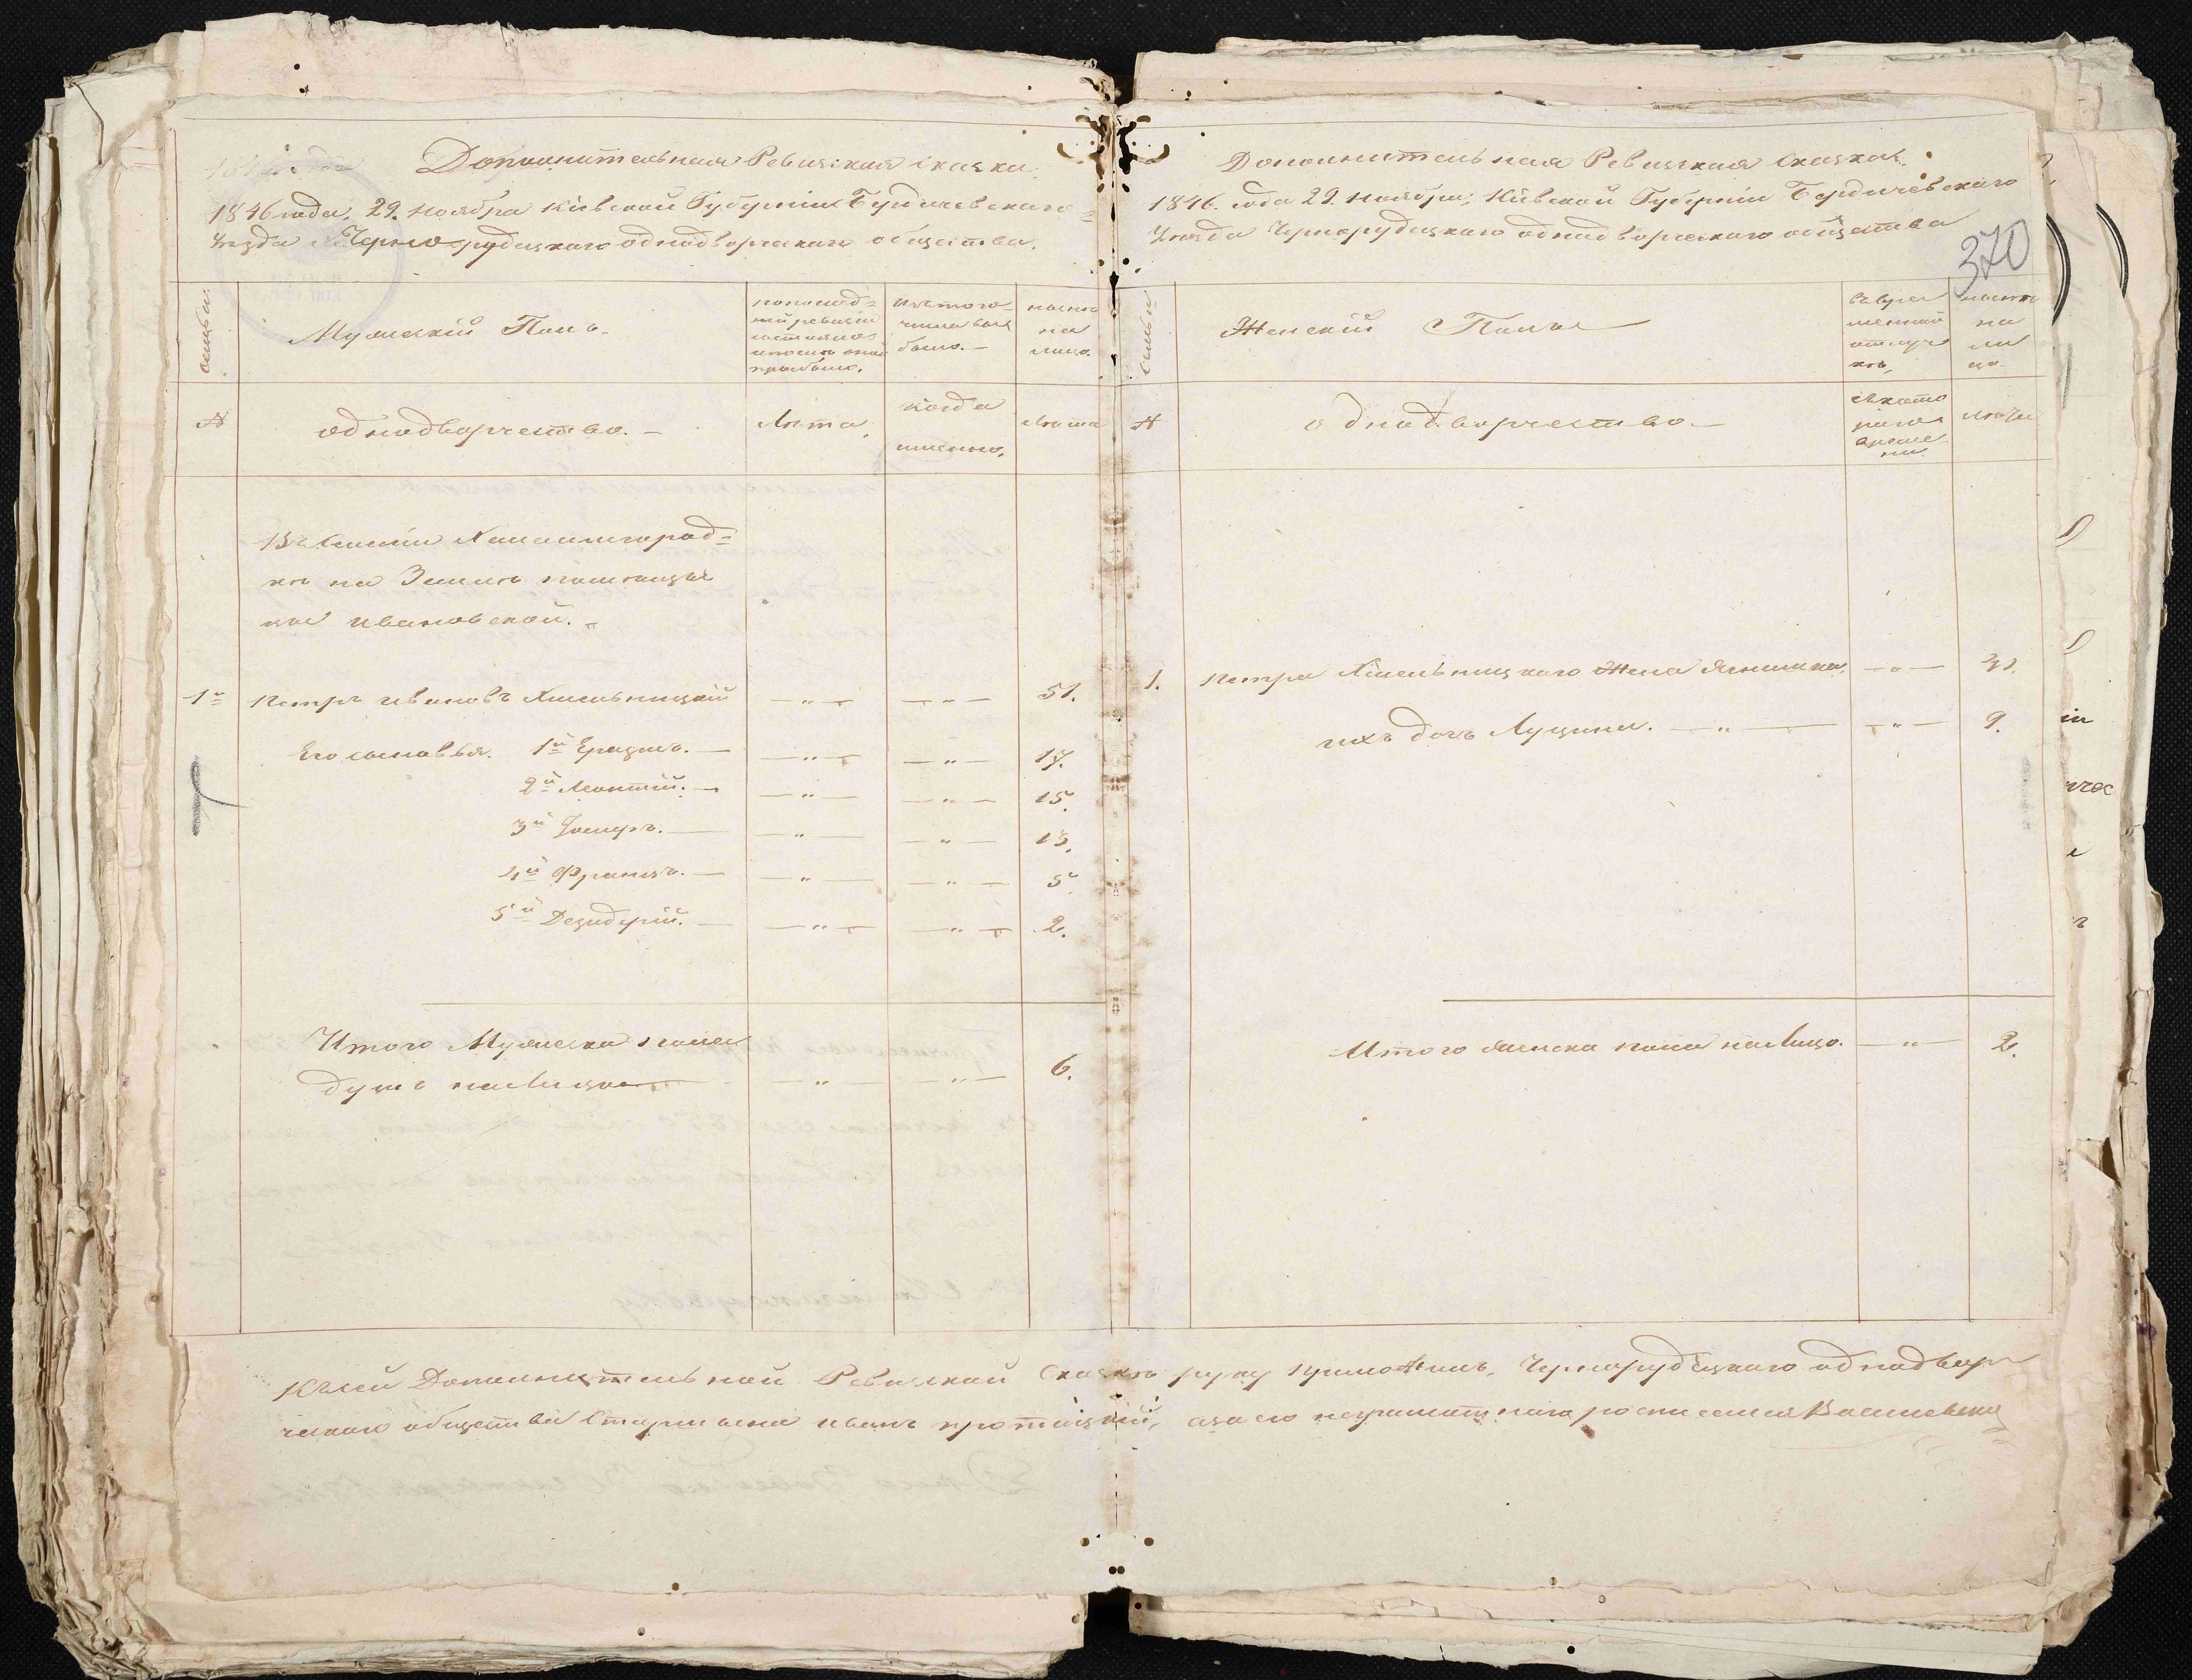 Дополнительная Ревизская сказка.
1846 года, 29. Ноября Кіевской Губерніи Бердичевскаго
Уезда Чернорудецкаго однодворческаго общества.
семьи.
Мужескій Полъ.
по послед=
ней ревизіи
состояло
и после оной
прибыло.
изъ того
числа выбыло.
ныне
на
лицо.
№
однодворчество.
Лета
когда
именно.
Лета
Въ Селеніи
на Земле помещи
цы Ивановской.
1й Петръ Ивановъ Хмельницкій — „ — — „ — 51.
Его сыновья. 1й Еразмъ. — „ — — „ — 17.
2й Леонтій. — „ — — „ — 15.
3й — „ — — „ — 13.
4й Францъ. — „ — — „ — 5.
5й Дезидерій. — „ — — „ — 2.
Итого Мужеска пола
душъ на лицо „ — „ — 6.
Дополнительная Ревизская Сказка.
1846. года 29. Ноября, Кіевской Губерніи Бердичевскаго
Уезда Чернорудецкаго однодворческаго общества
370
семьи
Женскій Полъ
въ вре
менной
отлуч
ке,
ныне
на
ли
цо.
№
однодворчество.
съ кото
раго
време
ни
Лета
1. Петра Хмельницкаго Жена — „ —
ихъ дочь Луцина. — „ — — „ — 9.
Итого женска пола на лицо. — „ — 2.
Къ сей Дополнительной Ревизской Сказке руку приложилъ, Чернорудецкаго однодвор
ческаго общества Старшина Иванъ а за его неграмотнаго росписался